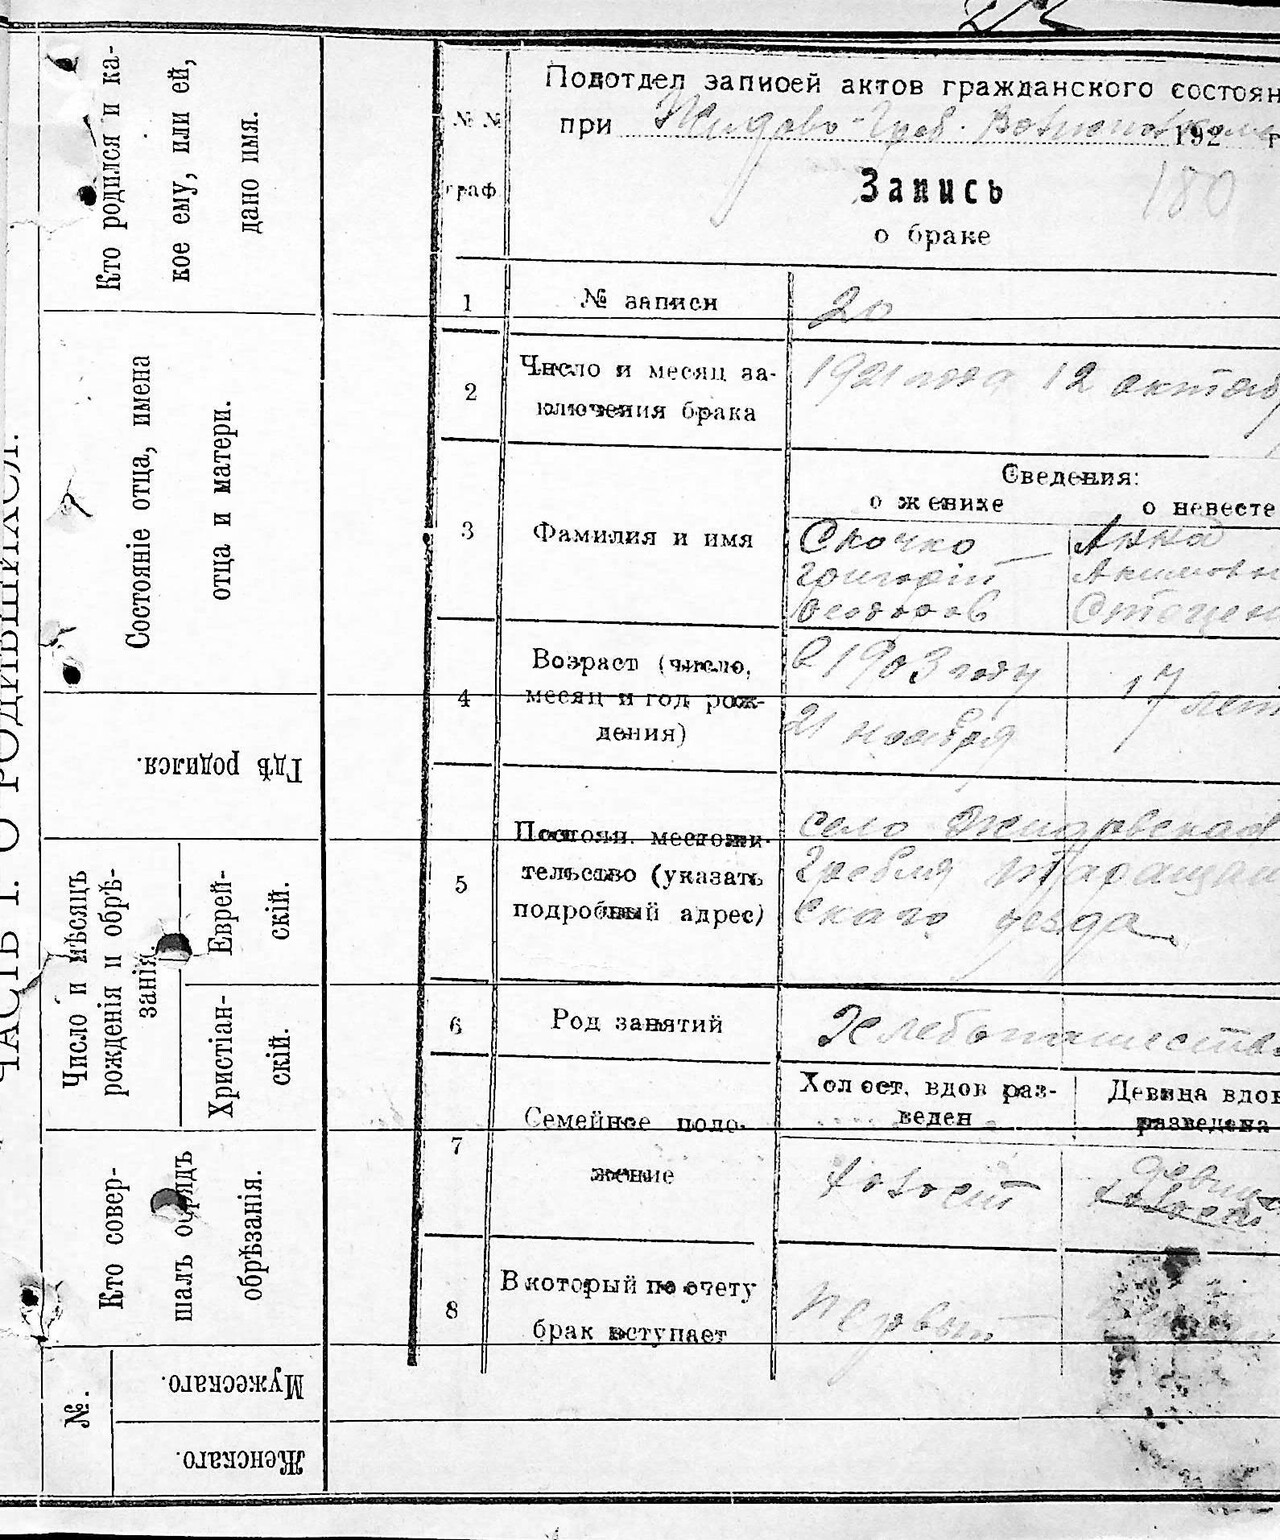 ЧАСТЬ I. О РОДИВШИХСЯ.
Кто родился и ка-
кое ему, или ей,
дано имя.
Состояніе отца, имена
отца и матери.
Гдѣ родился.
Число и мѣсяцъ
рожденія и обрѣ-
занія.
Еврей-
скій.
Христіан-
скій.
Кто совер-
шалъ обрядъ
обрѣзанія.
№.
Мужескаго.
Женскаго.
№ №
граф
Подотдел записей актов гражданского состоян
при Жидово-Греб. 192 г
180
Запись
о браке
1 № записи 20
2 Число и месяц за-
ключения брака
1921 года 12 октяб
3 Фамилия и имя
Сведения:
о женихе о невесте
Скочко Анна
Григорій Акимовн
Феодоров Стецен
4 Возраст (число,
месяц и год рож-
дения)
в 1903 году
21 ноября
17 лет
5 Постоян. местожи-
тельство (указать
подробный адрес)
село Жидовская
Гребля Таращан
скаго уезда
6 Род занятий Хлебопашеств
7 Семейное поло-
жение
Холост, вдов раз-
веден
Девица вдов
разведена
холост девица
холост
8 В который по счету
брак вступает
Первый